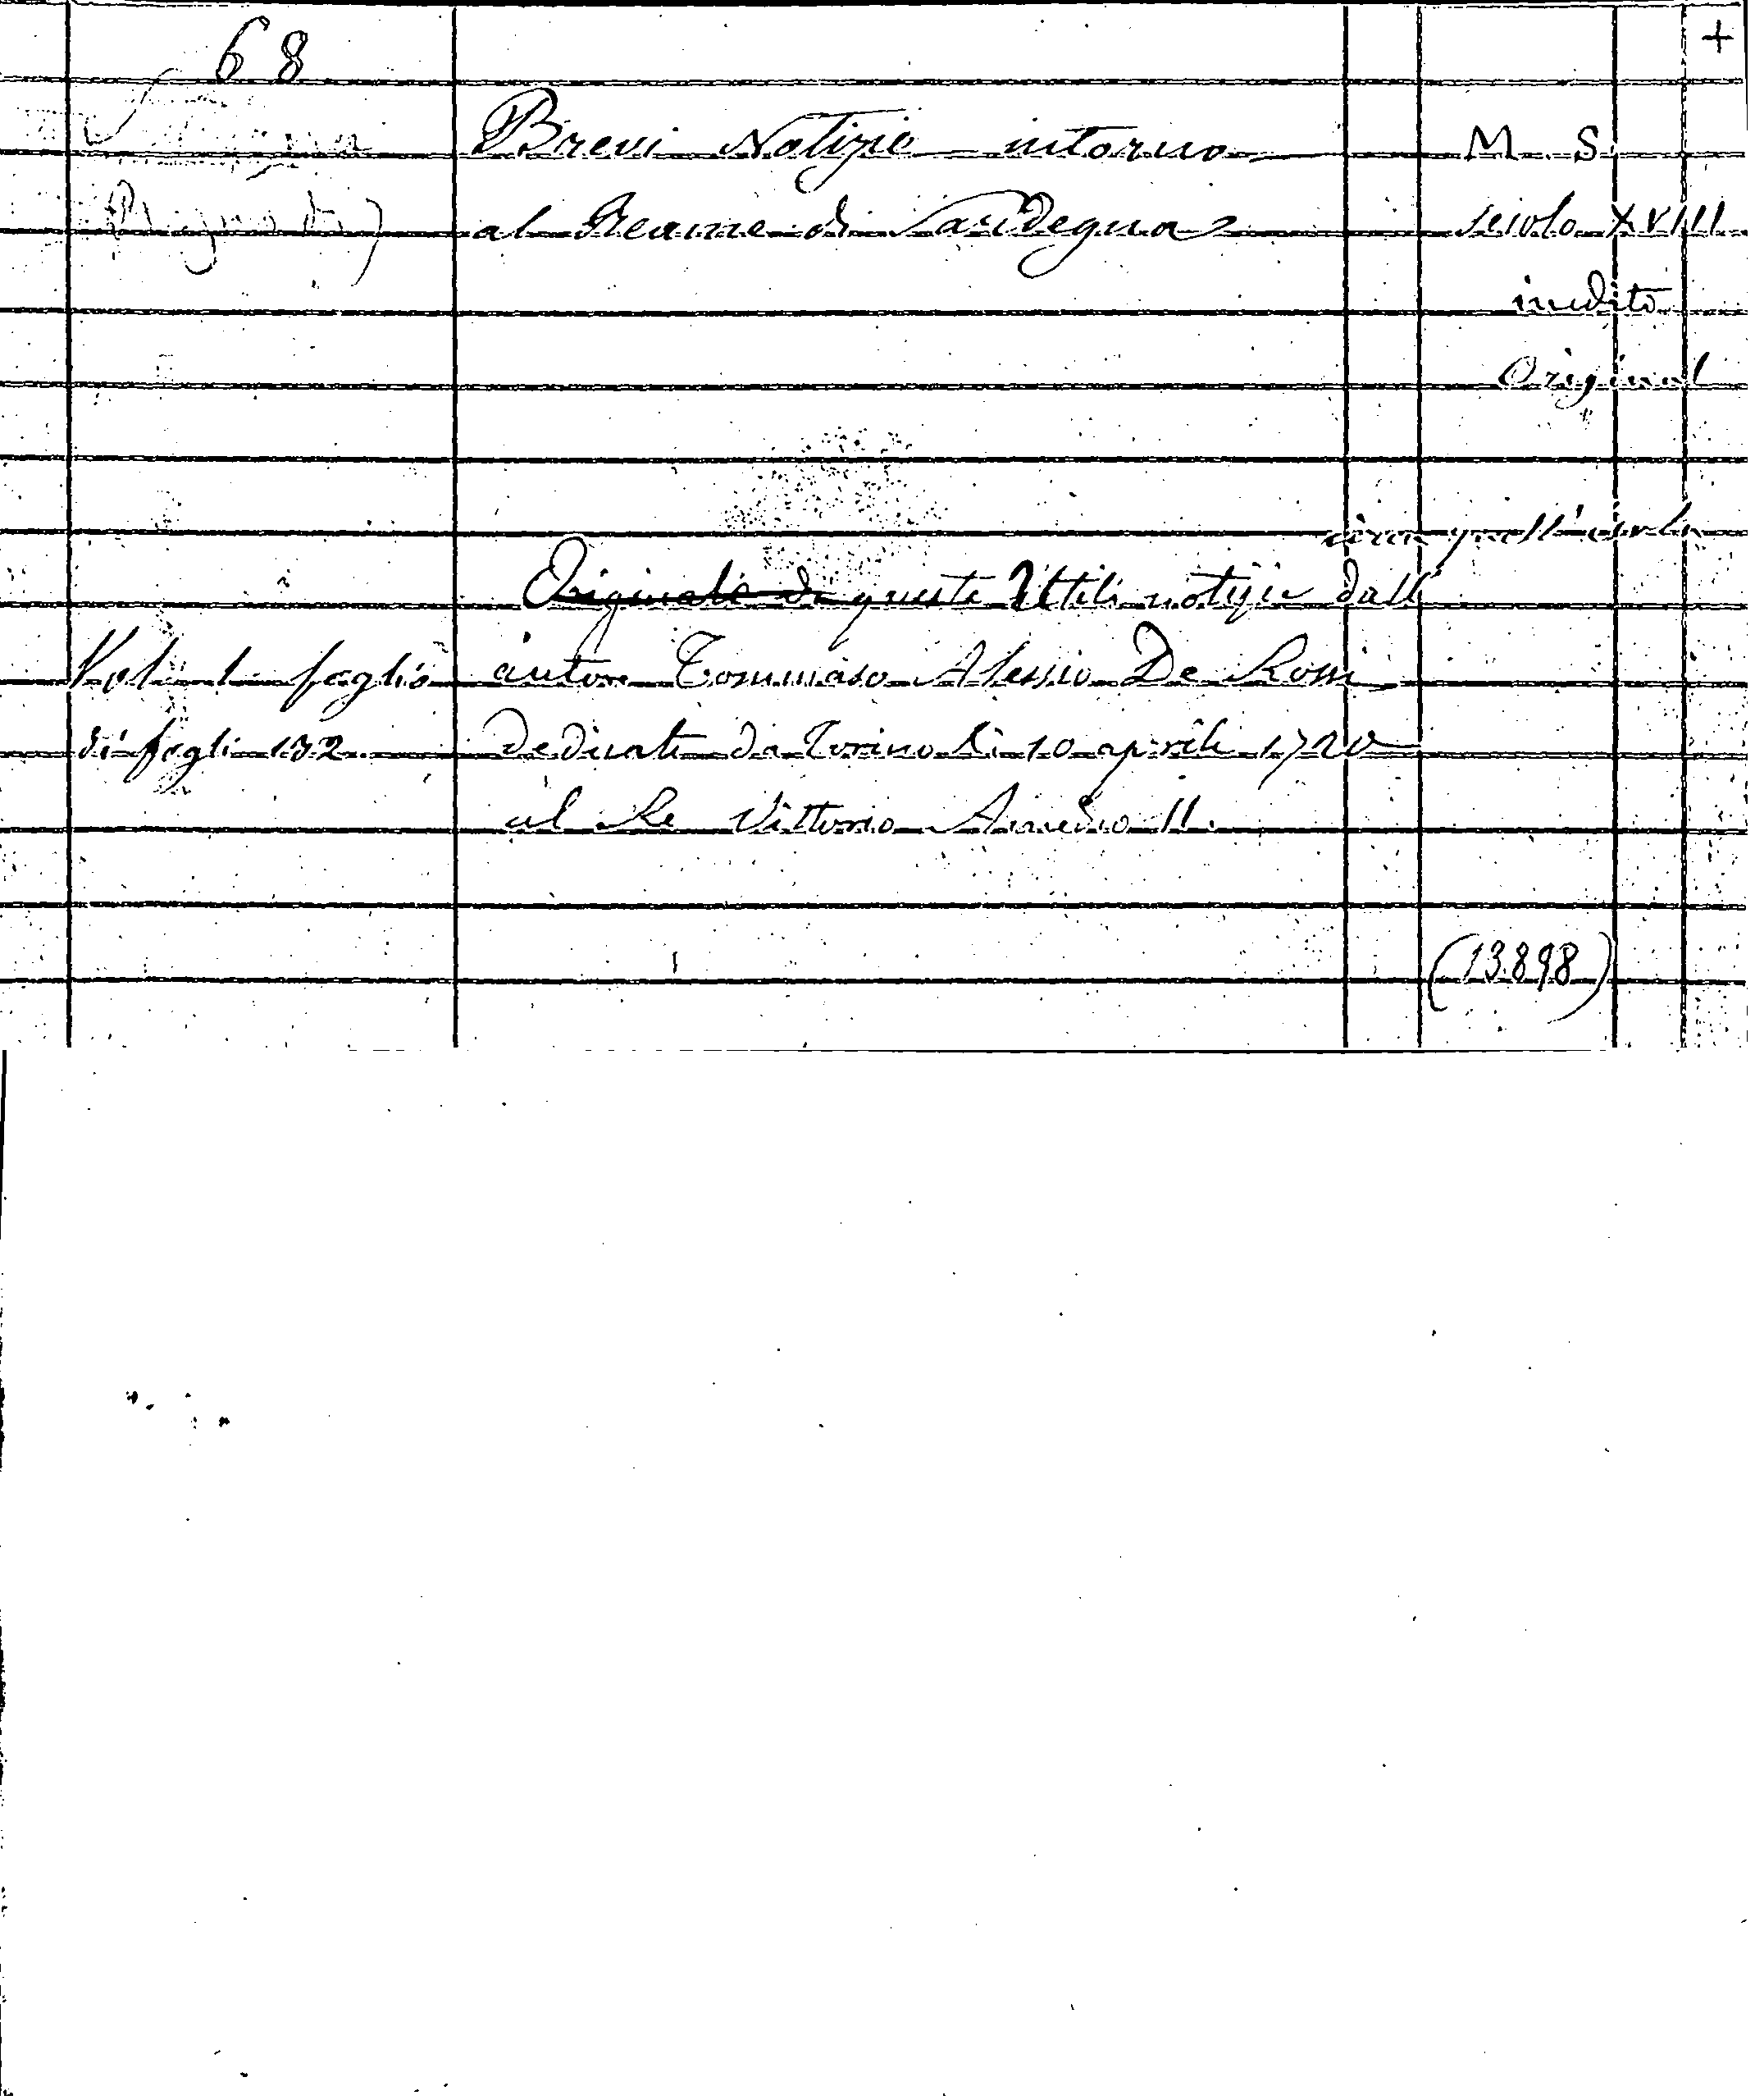 68
+
Brevi Notizie intorno
M. S.
(Regno di)
al Reame di Sardegna
secolo XVIII
inedito
Original
circa quell'isola
Originale di queste Utili notizie dall
Vol. 1 foglio
autore Tommaso Alessio De Rossi
di fogli 132
dedicate da Torino li 10 aprile 1720
al Re Vittorio Amedeo II.
(13.898)